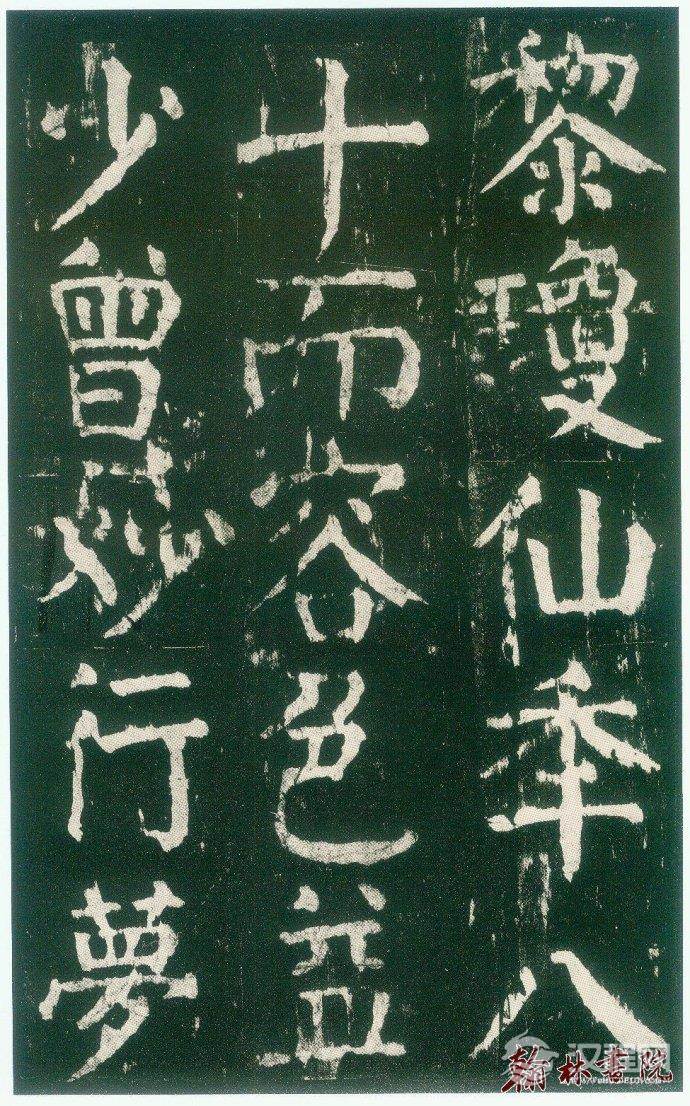 黎瓊仙年八
十而容色益
少曾妙行夢
翰林書院
汉程网